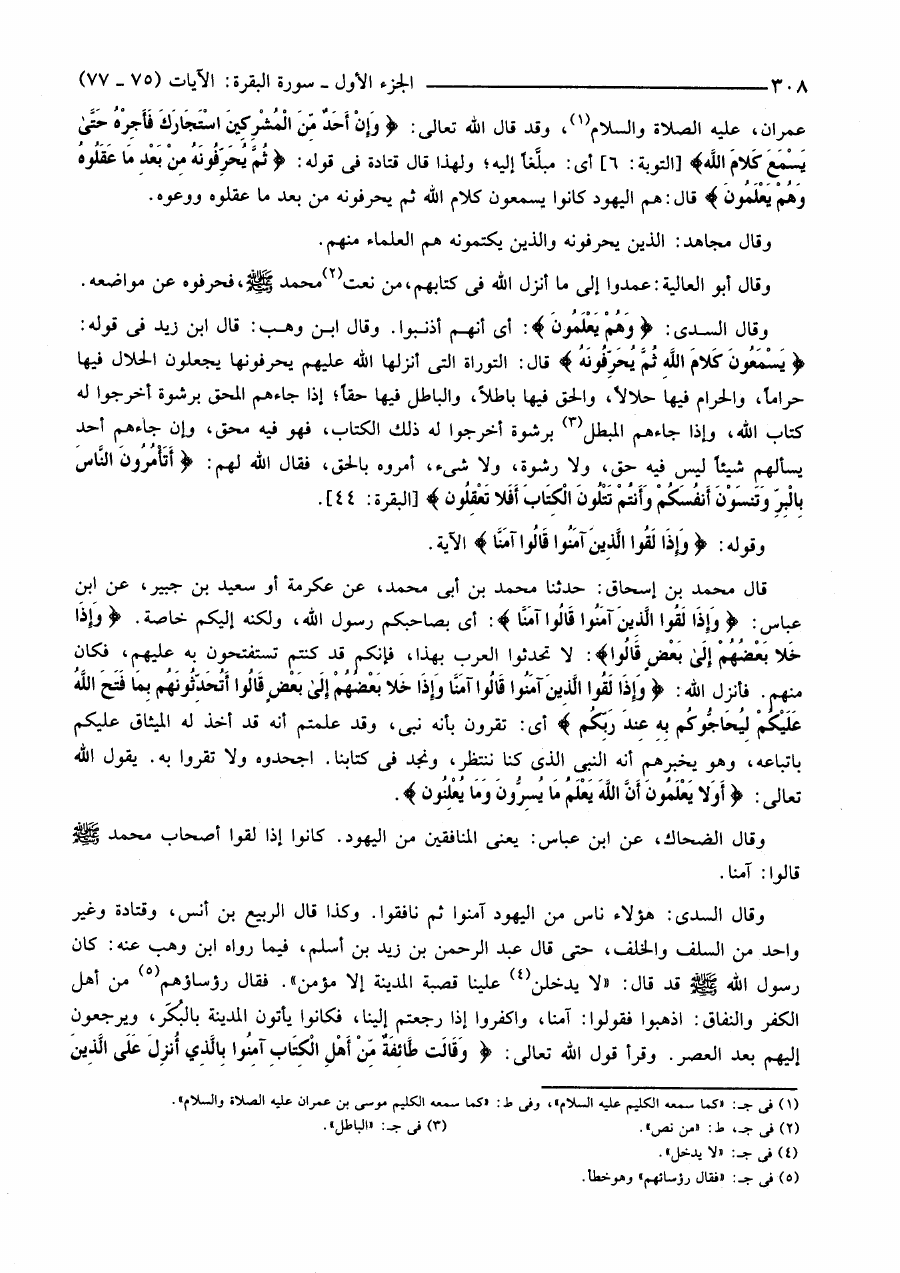 ٣٠٨ ــــــــــــــــــــــ الجزء الأول ـ سورة البقرة: الآيات (٧٥ ـ ٧٧)
عمران، عليه الصلاة والسلام(١)، وقد قال الله تعالى: ﴿ وَإِنْ أَحَدٌ مِّنَ الْمُشْرِكِينَ اسْتَجَارَكَ فَأَجِرْهُ حَتَّىٰ
يَسْمَعَ كَلامَ اللَّهِ﴾ [التوبة: ٦] أى: مبلَّغاً إليه؛ ولهذا قال قتادة فى قوله: ﴿ ثُمَّ يُحَرِّفُونَهُ مِنْ بَعْدِ مَا عَقَلُوهُ
وَهُمْ يَعْلَمُونَ ﴾ قال: هم اليهود كانوا يسمعون كلام الله ثم يحرفونه من بعد ما عقلوه ووعوه.
وقال مجاهد: الذين يحرفونه والذين يكتمونه هم العلماء منهم.
وقال أبو العالية: عمدوا إلى ما أنزل الله فى كتابهم،من نعت(٢)محمد ﷺ،فحرفوه عن مواضعه.
وقال السدى: ﴿ وَهُمْ يَعْلَمُونَ ﴾: أى أنهم أذنبوا. وقال ابن وهب: قال ابن زيد فى قوله:
﴿ يَسْمَعُونَ كَلامَ اللَّهِ ثُمَّ يُحَرِّفُونَهُ ﴾ قال: التوراة التى أنزلها الله عليهم يحرفونها يجعلون الحلال فيها
حراماً، والحرام فيها حلالاً، والحق فيها باطلاً، والباطل فيها حقاً؛ إذا جاءهم المحق برشوة أخرجوا له
كتاب الله، وإذا جاءهم المبطل(٣) برشوة أخرجوا له ذلك الكتاب، فهو فيه محق، وإن جاءهم أحد
يسألهم شيئاً ليس فيه حق، ولا رشوة، ولا شىء، أمروه بالحق، فقال الله لهم: ﴿ أَتَأْمُرُونَ النَّاسَ
بِالْبِرِّ وَتَنسَوْنَ أَنفُسَكُمْ وَأَنتُمْ تَتْلُونَ الْكِتَابَ أَفَلا تَعْقِلُونَ ﴾ [البقرة: ٤٤].
وقوله: ﴿ وَإِذَا لَقُوا الَّذِينَ آمَنُوا قَالُوا آمَنَّا ﴾ الآية.
قال محمد بن إسحاق: حدثنا محمد بن أبى محمد، عن عكرمة أو سعيد بن جبير، عن ابن
عباس: ﴿ وَإِذَا لَقُوا الَّذِينَ آمَنُوا قَالُوا آمَنَّا ﴾: أى بصاحبكم رسول الله، ولكنه إليكم خاصة. ﴿ وَإِذَا
خَلا بَعْضُهُمْ إِلَىٰ بَعْضٍ قَالُوا﴾: لا تحدثوا العرب بهذا، فإنكم قد كنتم تستفتحون به عليهم، فكان
منهم. فأنزل الله: ﴿ وَإِذَا لَقُوا الَّذِينَ آمَنُوا قَالُوا آمَنَّا وَإِذَا خَلا بَعْضُهُمْ إِلَىٰ بَعْضٍ قَالُوا أَتُحَدِّثُونَهُم بِمَا فَتَحَ اللَّهُ
عَلَيْكُمْ لِيُحَاجُّوكُم بِهِ عِندَ رَبِّكُم ﴾ أى: تقرون بأنه نبى، وقد علمتم أنه قد أخذ له الميثاق عليكم
باتباعه، وهو يخبرهم أنه النبى الذى كنا ننتظر، ونجد فى كتابنا. اجحدوه ولا تقروا به. يقول الله
تعالى: ﴿ أَوَلا يَعْلَمُونَ أَنَّ اللَّهَ يَعْلَمُ مَا يُسِرُّونَ وَمَا يُعْلِنُون ﴾.
وقال الضحاك، عن ابن عباس: يعنى المنافقين من اليهود. كانوا إذا لقوا أصحاب محمد ﷺ
قالوا: آمنا.
وقال السدى: هؤلاء ناس من اليهود آمنوا ثم نافقوا. وكذا قال الربيع بن أنس، وقتادة وغير
واحد من السلف والخلف، حتى قال عبد الرحمن بن زيد بن أسلم، فيما رواه ابن وهب عنه: كان
رسول الله ﷺ قد قال: «لا يدخلن(٤) علينا قصبة المدينة إلا مؤمن». فقال رؤساؤهم(٥) من أهل
الكفر والنفاق: اذهبوا فقولوا: آمنا، واكفروا إذا رجعتم إلينا، فكانوا يأتون المدينة بالبُكَر، ويرجعون
إليهم بعد العصر. وقرأ قول الله تعالى: ﴿ وَقَالَت طَّائِفَةٌ مِّنْ أَهْلِ الْكِتَابِ آمِنُوا بِالَّذِي أُنزِلَ عَلَى الَّذِينَ
(١) فى جـ: «كما سمعه الكليم عليه السلام»، وفى ط: «كما سمعه الكليم موسى بن عمران عليه الصلاة والسلام».
(٢) فى جـ، ط: «من نص». (٣) فى جـ: «الباطل».
(٤) فى جـ: «لا يدخل».
(٥) فى جـ: «فقال رؤسائهم» وهوخطأ.